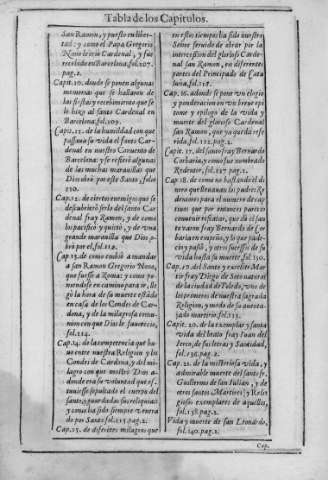 Tabla de los Capitulos.
San Ramón, y puesto en liber-
tad: y como el Papa Gregorio
Nono le hizo Cardenal, y fue
recebido en Barcelona, fol. 107.
pag. 2.
Capit. 10. donde se ponen algunas
memorias que se hallaron de
las fiestas y recebimiento que se
le hizo al santo Cardenal en
Barcelona, fol. 109.
Capit. 11. de la humildad con que
passaua su vida el santo Car-
denal en nuestro Conuento de
Barcelona: y se refieré algunas
de las muchas marauillas que
Dios obró por este Santo, folio
110.
Cap. 12. de ciertos enemigos que se
descubrieró
denal fray Ramon, y de como
los pacificò y quitò, y de vna
grande marauilla que Dios o-
bró por el, fol. 112.
Cap. 13. de como embió a mandar
a san Ramon Gregorio Nono,
que fuesse a Roma: y como po-
niendose en camino para ir, lle-
gò la hora de su muerte estãdo
en casa de los Condes de Car-
dona, y de la milagrosa comu-
nion con que Dios le fauorecio,
fol. 114.
Cap. 14. de la competencia que hu-
uo entre nuestra Religion y los
Condes de Cardona, y del mi-
lagro con que mostrò Dios a-
donde era su voluntad que es-
tuuiesse sepultado el cuerpo del
santo, y guardadas sus reliquias:
y como ha sido siempre venera-
do por Santo, fol. 115. pag. 2.
Cap. 15. de diferẽtes milagros que
en estos tiempos ha sido nuestro
Señor seruido de obrar por la
intercession del glorioso Carde-
nal san Ramon, en diferentes
partes del Principado de Cata
luña, fol. 118.
Cap. 16. adonde se pone vn elogio
y ponderacion en vn breue epi-
tome y epilogo de la vida y
muerte del glorioso Cardenal
san Ramon, que ya queda refe-
rida, fol. 122. pag. 2.
Cap. 17. del santo fray Bernardo de
Corbaria, y como fue nombrado
Redentor, fol. 127. pag. 2.
Cap. 18. de como no bastando el di-
nero que lleuauan los padres Re-
dentores para el numero de cau-
tiuos que por entonces parecio
conuenir rescatar, que dò el san-
to varon fray Bernardo de Cor-
baria en empeño, y lo que pade-
cio y passó, y otros sucessos de su
vida hasta su muerte, fol. 130.
Cap. 19. del Santo y excelẽte Mar-
tir fray Diego de Soto natural
de la ciudad de Toledo, vno de
los primeros de nuestra sagrada
Religion, y modo de su atrozis-
do martirio, fol. 133.
Capit. 20. de la exemplar y santa
vida del beato fray Iuan de
Lerez, de sus letras y Santidad,
fol. 136. pag. 2.
Cap. 21. de la misteriosa vida, y
admirable muerte del santo fr.
Guillermo de san Iulian, y de
otros santos Martires y Reli-
giosos exemplares de aquellos,
fol. 138. pag. 2.
Vida y muerte de san Leonardo,
fol. 140. pag. 2.
Cap.